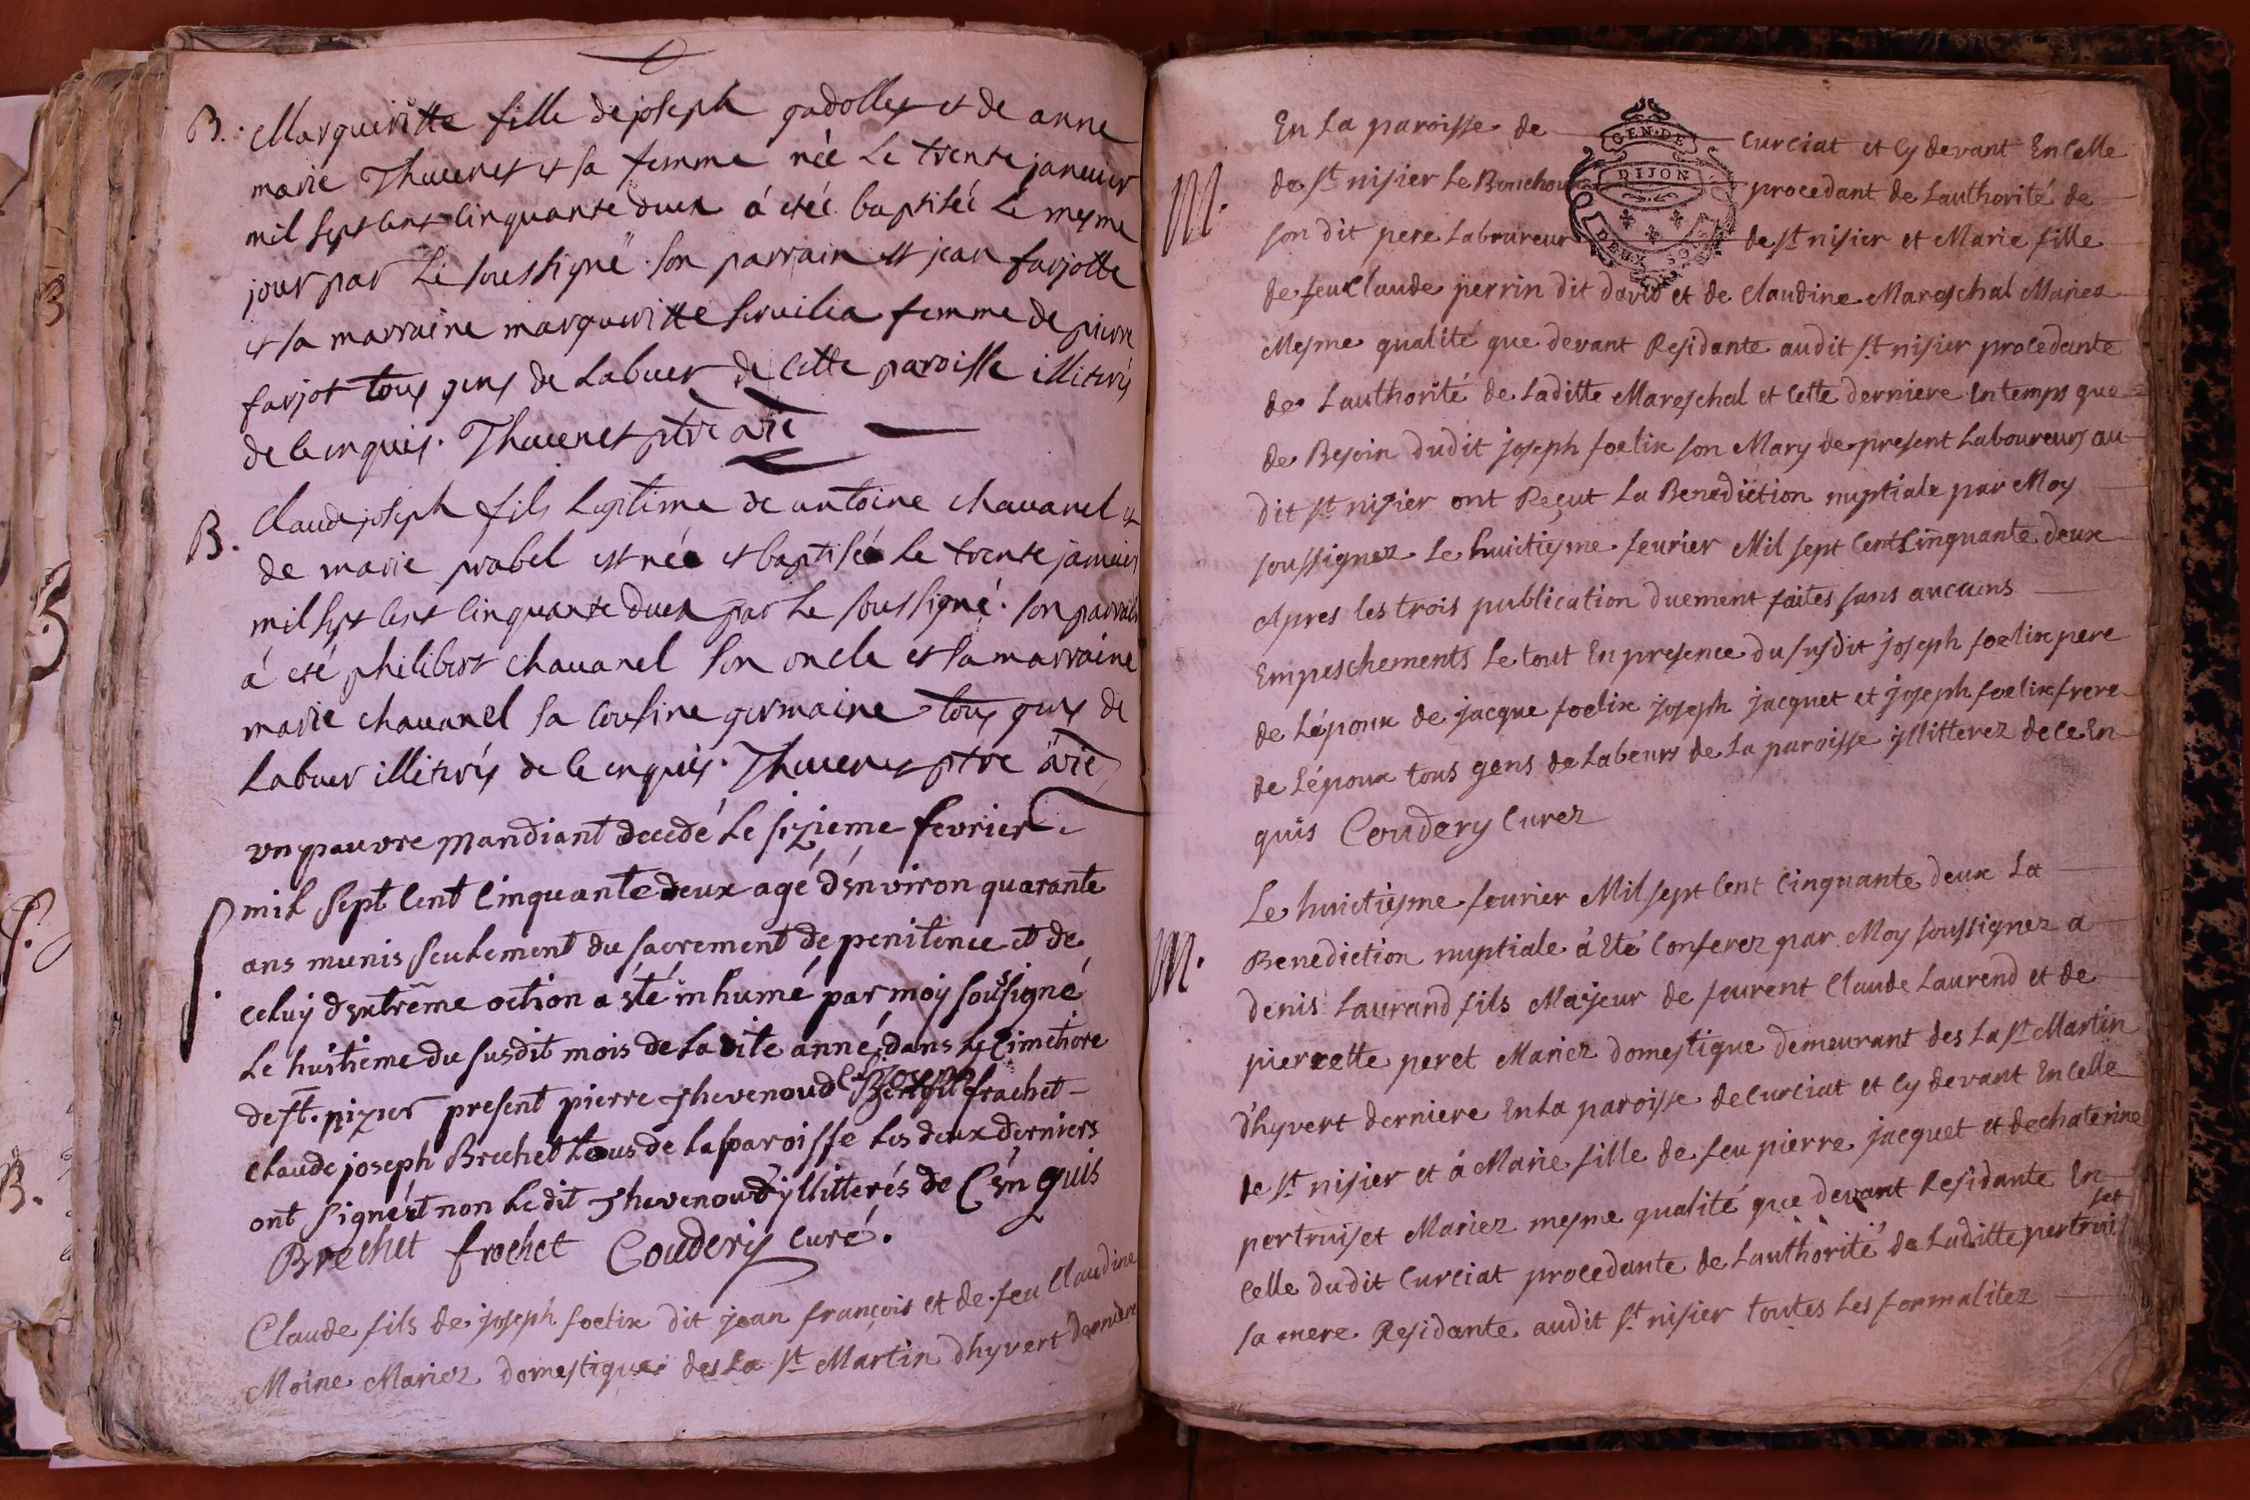 B. Marguerite fille de joseph gadolles et de anne
marie Thuvenet et sa femme née Le trente janvier
mil sept cent cinquante deux á etéé baptiséé Le mesme
jour par Le soussigné son parrain est jean farjotte
et sa marraine margueritte servilia femme de pierre
farjot tous gens de Labuer de cette paroisse illiterés
de ce enquis. Thuvenet ptre vic
B. Claude joseph fils legitime de antoine chavanel et
de marie prabel est née et baptiséé Le trente janvier
mil sept cent cinquante deux par Le soussigné. son parrain
á eté philibert chavanel son oncle et sa marraine
marie chavanel sa cousine germaine tous gens de
Labuer illiterés de ce enquis. Thuvenet ptre vic
vn pauvre mandiant decedé Le sizieme fevrier
S. mil sept cent cinquante deux agé d'énviron quarante
ans munis seulement du sacrement de penitence et de
celuy d'extrême oction a été inhumé par moy sousigné
Le huitieme du susdit mois de La dite anné, dans Le Cimetiore
de st. nizier present pierre Thevenoud et joseph frachet
claude joseph Brechet tous de La paroisse Les deux derniers
ont signé et non Le dit Thevenoud yllitterés de C'én quis
Brechet frachet Coudery curé.
Claude fils de joseph foelix dit jean françois et de feu Claudine
Moine Mariez domestique des La st Martin d'hyvert derniere
En La paroisse de Curciat et Cy devant En Celle
M. de st nisier Le Bouchoux procedant de Lauthorité de
son dit pere Laboureur de st nisier et Marie fille
de feu Claude perrin dit david et de Claudine Mareschal Mariez
Mesme qualité que devant Residante audit st nisier procedante
de Lauthorité de Laditte Mareschal et Cette derniere En temps que
de Besoin dudit joseph foelix son Mary de present Laboureurs au
dit st nisier ont Reçut La Benediction nuptiale par Moy
soussignez Le huictiesme fevrier Mil sept Cent Cinquante deux
Apres les trois publication duement faites sans aucuns
Empeschements Le tout En presence du susdit joseph foelix pere
de L'époux de jacque foelix joseph jacquet et joseph foelix frere
de L'époux tous gens de Labeurs de La paroisse yllitterez de Ce En
quis Coudery Curez
Le huictiesme fevrier Mil sept Cent Cinquante deux La
M. Benediction nuptiale á Eté Conferez par Moy soussignez a
denis Laurand fils Majeur de feurent Claude Laurend et de
pierrette peret Mariez domestique demeurant des La st Martin
d'hyvert derniere En La paroisse de Curciat et Cy devant En Celle
de st nisier et á Marie fille de feu pierre jacquet et de chaterine
pertruiset Mariez mesme qualité que devant Residante En
Celle dudit Curciat procedante de Lauthorité de Laditte pertruiset
sa mere Residante audit st nisier toutes Les formalitez
GEN. DE
DIJON
DEUX SOLS